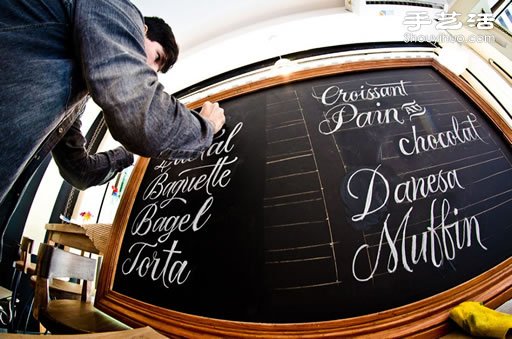 Baguette
Bagel
Torta
Croissant
Pain AU
chocolat
Danesa
Muffin
手艺活
Shouyihuo.com